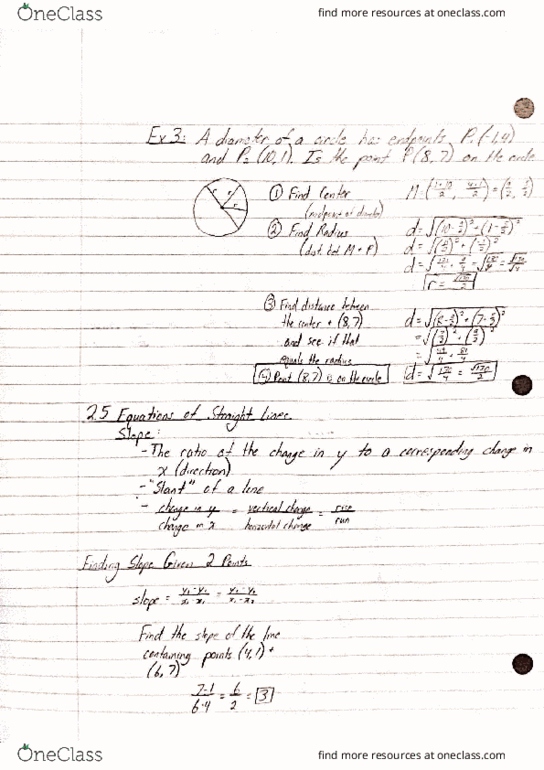 OneClass
find more resources at oneclass.com
Ex 3: A diameter of a circle has endpoints P₁(-1,4)
and P₂ (10,1). Is the point P(8,7) on the circle
① Find Center
(midpoint of diameter)
M: (-1+10/2, 4+1/2) = (9/2, 5/2)
② Find Radius
(dist. bet M + P)
d = √(10 - 9/2)² + (1 - 5/2)²
d = √(11/2)² + (-3/2)²
d = √121/4 + 9/4 = √130/4 = √130/√4
r = √130/2
③ Find distance between
the center + (8,7)
and see if that
equals the radius
d = √(8 - 9/2)² + (7 - 5/2)²
= √(7/2)² + (9/2)²
= √49/4 + 81/4
d = √130/4 = √130/2
Point (8,7) is on the circle
2.5 Equations of Straight Lines
Slope:
- The ratio of the change in y to a corresponding change in
x (direction)
- "Slant" of a line
- change in y/change in x = vertical change/horizontal change = rise/run
Finding Slope Given 2 Points
slope = y₂-y₁/x₂-x₁ = y₁-y₂/x₁-x₂
Find the slope of the line
containing points (4,1) +
(6,7)
7-1/6-4 = 6/2 = 3
OneClass
find more resources at oneclass.com